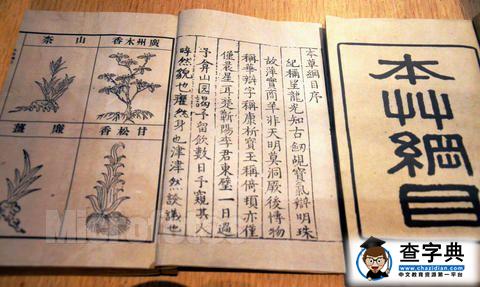 本艸綱目
本草綱目序
紀稱望龍光知古劒覘寶氣辯明珠
故萍實商羊非天明莫洞厥後博物
稱華辯字稱康析寶玉稱倚頓亦僅
僅晨星耳楚蘄陽李君東璧一日過
予弇山園謁予留飲數日予窺其人
睟然貌也癯然身也津津然談議也
廣州木香
山柰
甘松香
廉薑
查字典
中文教育资源第一平台 www.chazidian.com